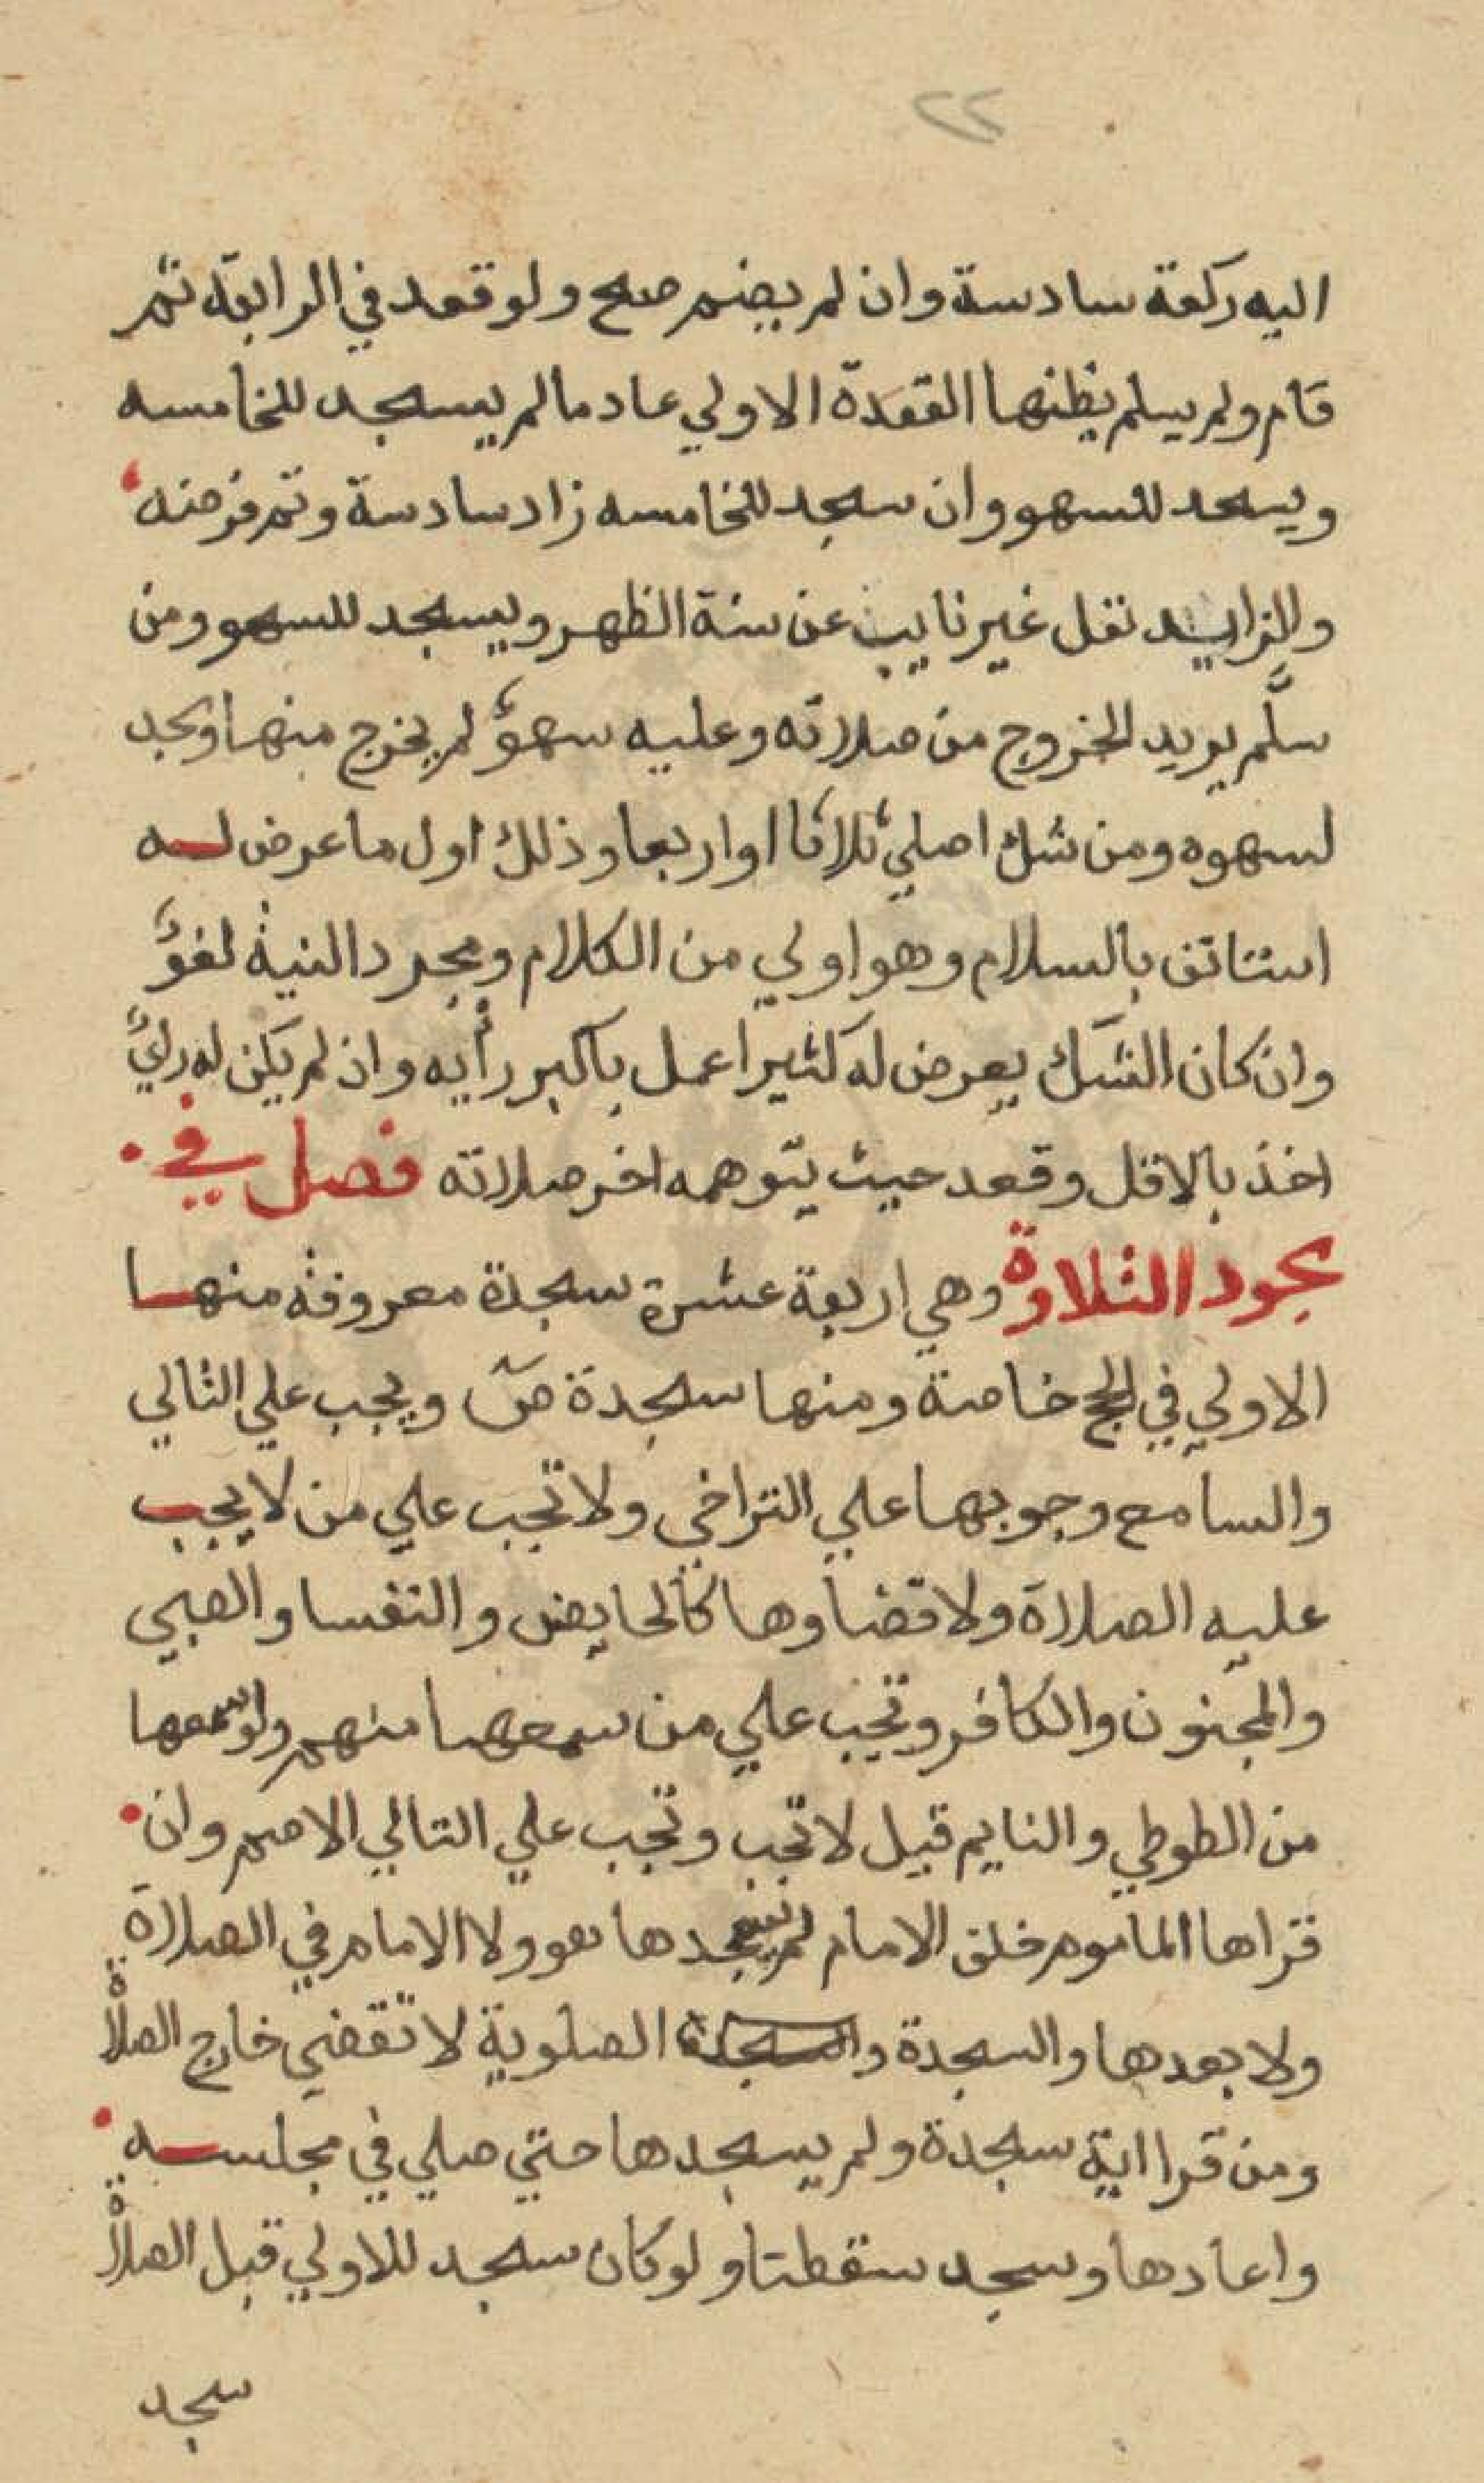 ٢٢
اليه ركعة سادسة وان لم يضم صح ولو قعد في الرابعة ثم
قام ولم يسلم يظنها القعدة الاولي عاد ما لم يسجد للخامسه
ويسجد للسهو وان سجد للخامسه زاد سادسة وتم فرضه
والزايد نفل غير نايب عن سنة الظهر ويسجد للسهو ومن
سلَّم يريد الخروج من صلاته وعليه سهوٌ لم يخرج منها وسجد
لسهوه ومن شك اصلي ثلاثا او اربعا وذلك اول ما عرض له
استانف بالسلام وهو اولي من الكلام ومجرد النية لغوٌ
وان كان الشك يعرض له كثيرا عمل باكبر رأيه وان لم يكن له رايٌ
اخذ بالاقل وقعد حيث يتوهمه اخر صلاته فصل في
سجود التلاوة وهي اربعة عشرة سجدة معروفة منها
الاولي في الحج خاصة ومنها سجدة ص ويجب علي التالي
والسامع وجوبها علي التراخي ولا تجب علي من لا يجب
عليه الصلاة ولا قضاوها كالحايض والنفسا والصبي
والمجنون والكافر وتجب علي من سمعها منهم ولو سمعها
من الطوطي والنايم قيل لا تجب وتجب علي التالي الاصم وان
قراها الماموم خلف الامام لم يسجدها هو ولا الامام في الصلاة
ولا بعدها والسجدة الصلوية لا تقضي خارج الصلاة
ومن قرا اية سجدة ولم يسجدها حتي صلي في مجلسه
واعادها وسجد سقطتا ولو كان سجد للاولي قبل الصلاة
سجد